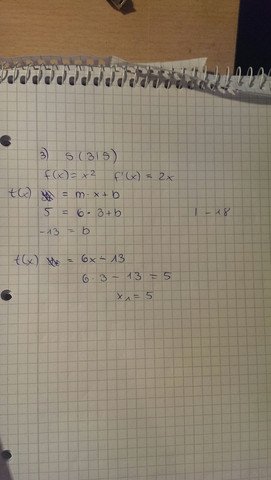 3) S (3|5)
f(x) = x² f'(x) = 2x
t(x) = m · x + b
5 = 6 · 3 + b | - 18
-13 = b
t(x) = 6x - 13
6 · 3 - 13 = 5
x₁ = 5